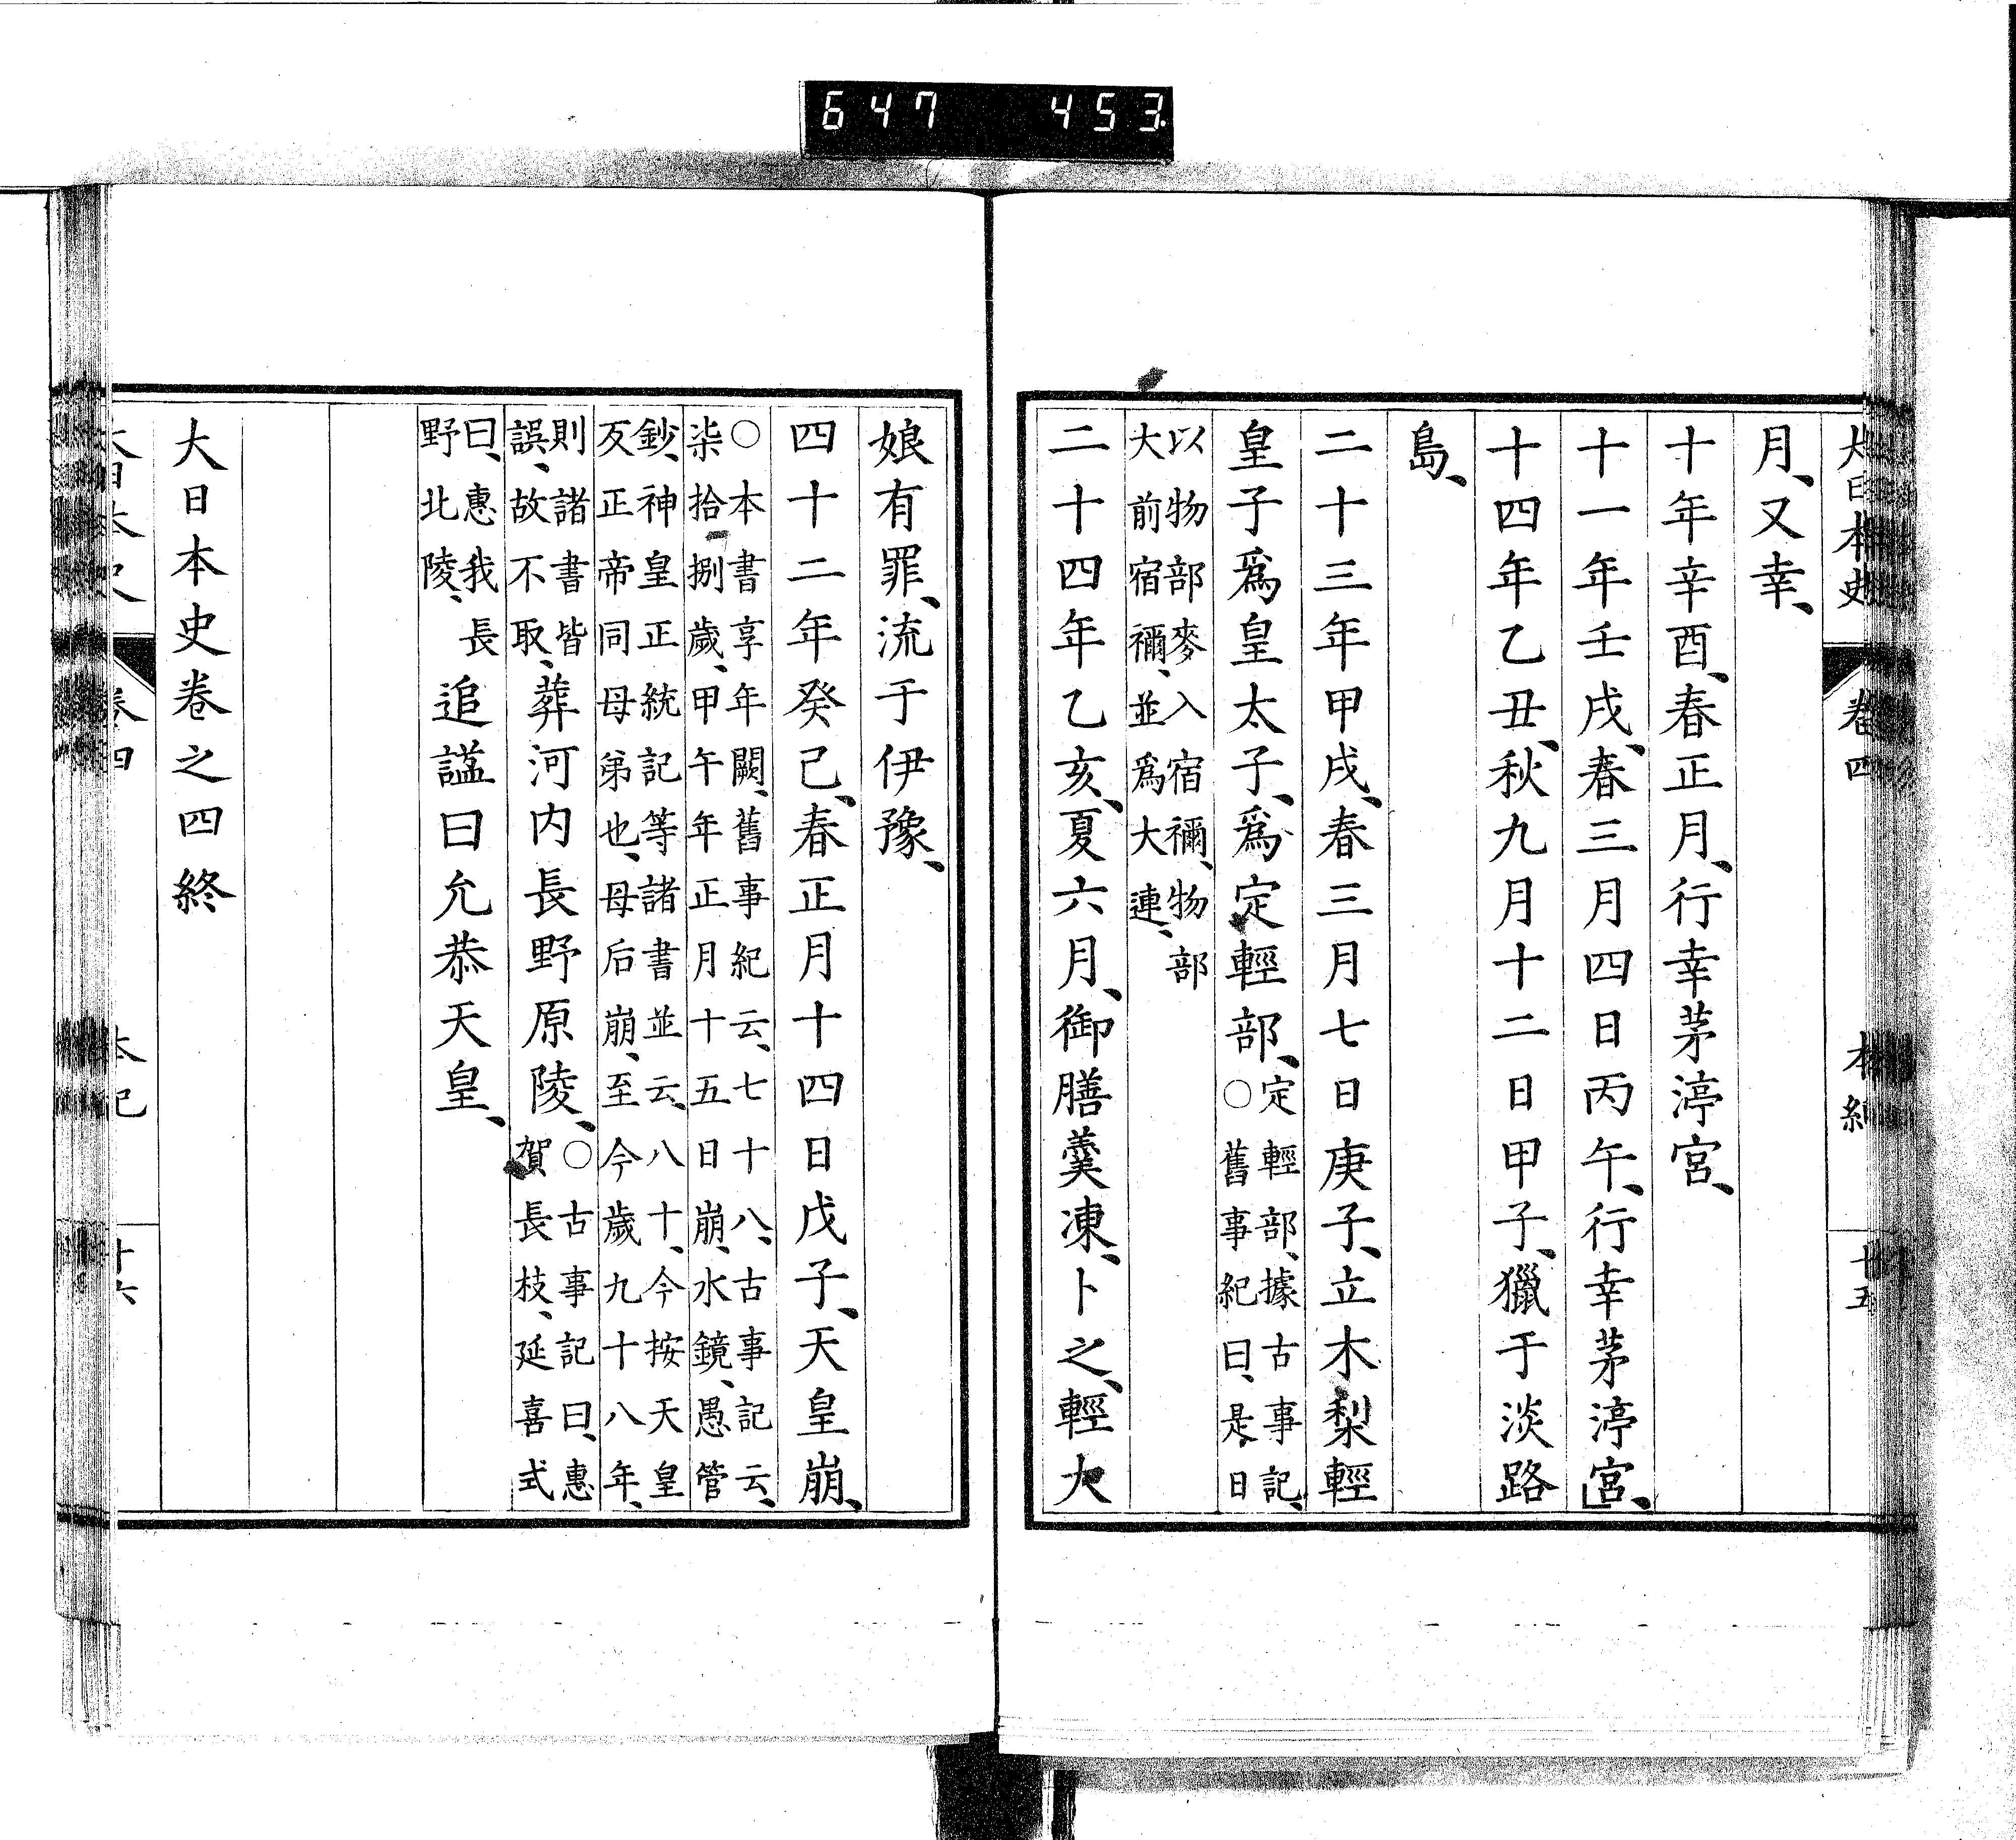 647 453
大日本史 卷四 本紀 廿五
月、又幸、
十年辛酉、春正月、行幸茅渟宮、
十一年壬戌、春三月四日丙午、行幸茅渟宮、
十四年乙丑、秋九月十二日甲子、獵于淡路
島、
二十三年甲戌、春三月七日庚子、立木梨輕
皇子爲皇太子、爲定輕部、
定輕部、據古事記、
○舊事紀曰、是日
以物部麥入宿禰、物部
大前宿禰、並爲大連、
二十四年乙亥、夏六月、御膳羹凍、卜之、輕大
娘有罪、流于伊豫、
四十二年癸己、春正月十四日戊子、天皇崩、
○本書享年闕、舊事紀云、七十八、古事記云、
柒拾捌歲、甲午年正月十五日崩、水鏡、愚管
鈔、神皇正統記等諸書並云、八十、今按天皇
反正帝同母弟也、母后崩、至今歲九十八年、
則諸書皆
誤、故不取、
葬河内長野原陵、
○古事記曰、惠
賀長枝、延喜式
曰、惠我長
野北陵、
追謚曰允恭天皇、
大日本史卷之四終
大日本史 卷四 本紀 廿六